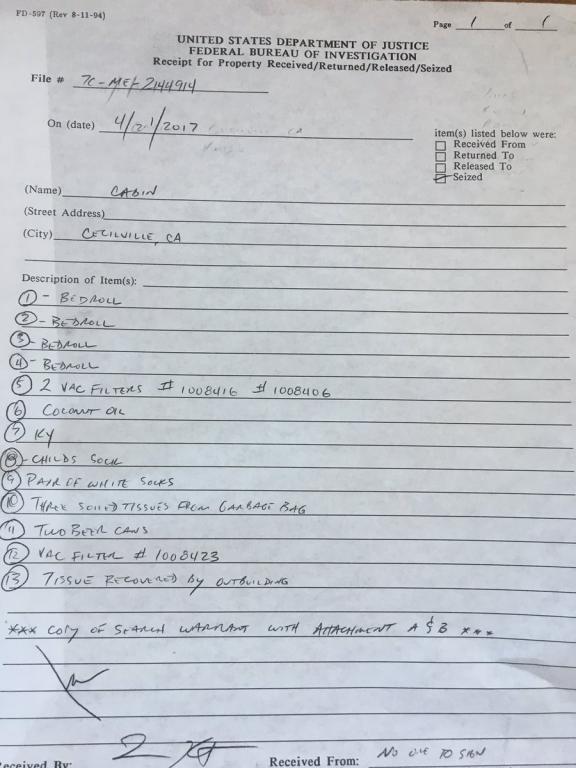 FD-597 (Rev 8-11-94)
Page 1 of 1
UNITED STATES DEPARTMENT OF JUSTICE
FEDERAL BUREAU OF INVESTIGATION
Receipt for Property Received/Returned/Released/Seized
File # 7C-ME-2144914
On (date) 4/21/2017
item(s) listed below were:
Received From
Returned To
Released To
Seized
(Name) CABIN
(Street Address)
(City) CECILVILLE, CA
Description of Item(s):
1 - BEDROLL
2 - BEDROLL
3 - BEDROLL
4 - BEDROLL
5 2 VAC FILTERS # 1008416 # 1008406
6 COCONUT OIL
7 KY
8 - CHILDS SOCK
9 PAIR OF WHITE SOCKS
10 THREE SOILED TISSUES FROM GARBAGE BAG
11 TWO BEER CANS
12 VAC FILTER # 1008423
13 TISSUE RECOVERED BY OUTBUILDING
*** COPY OF SEARCH WARRANT WITH ATTACHMENT A & B ***
Received By:
Received From: NO ONE TO SIGN